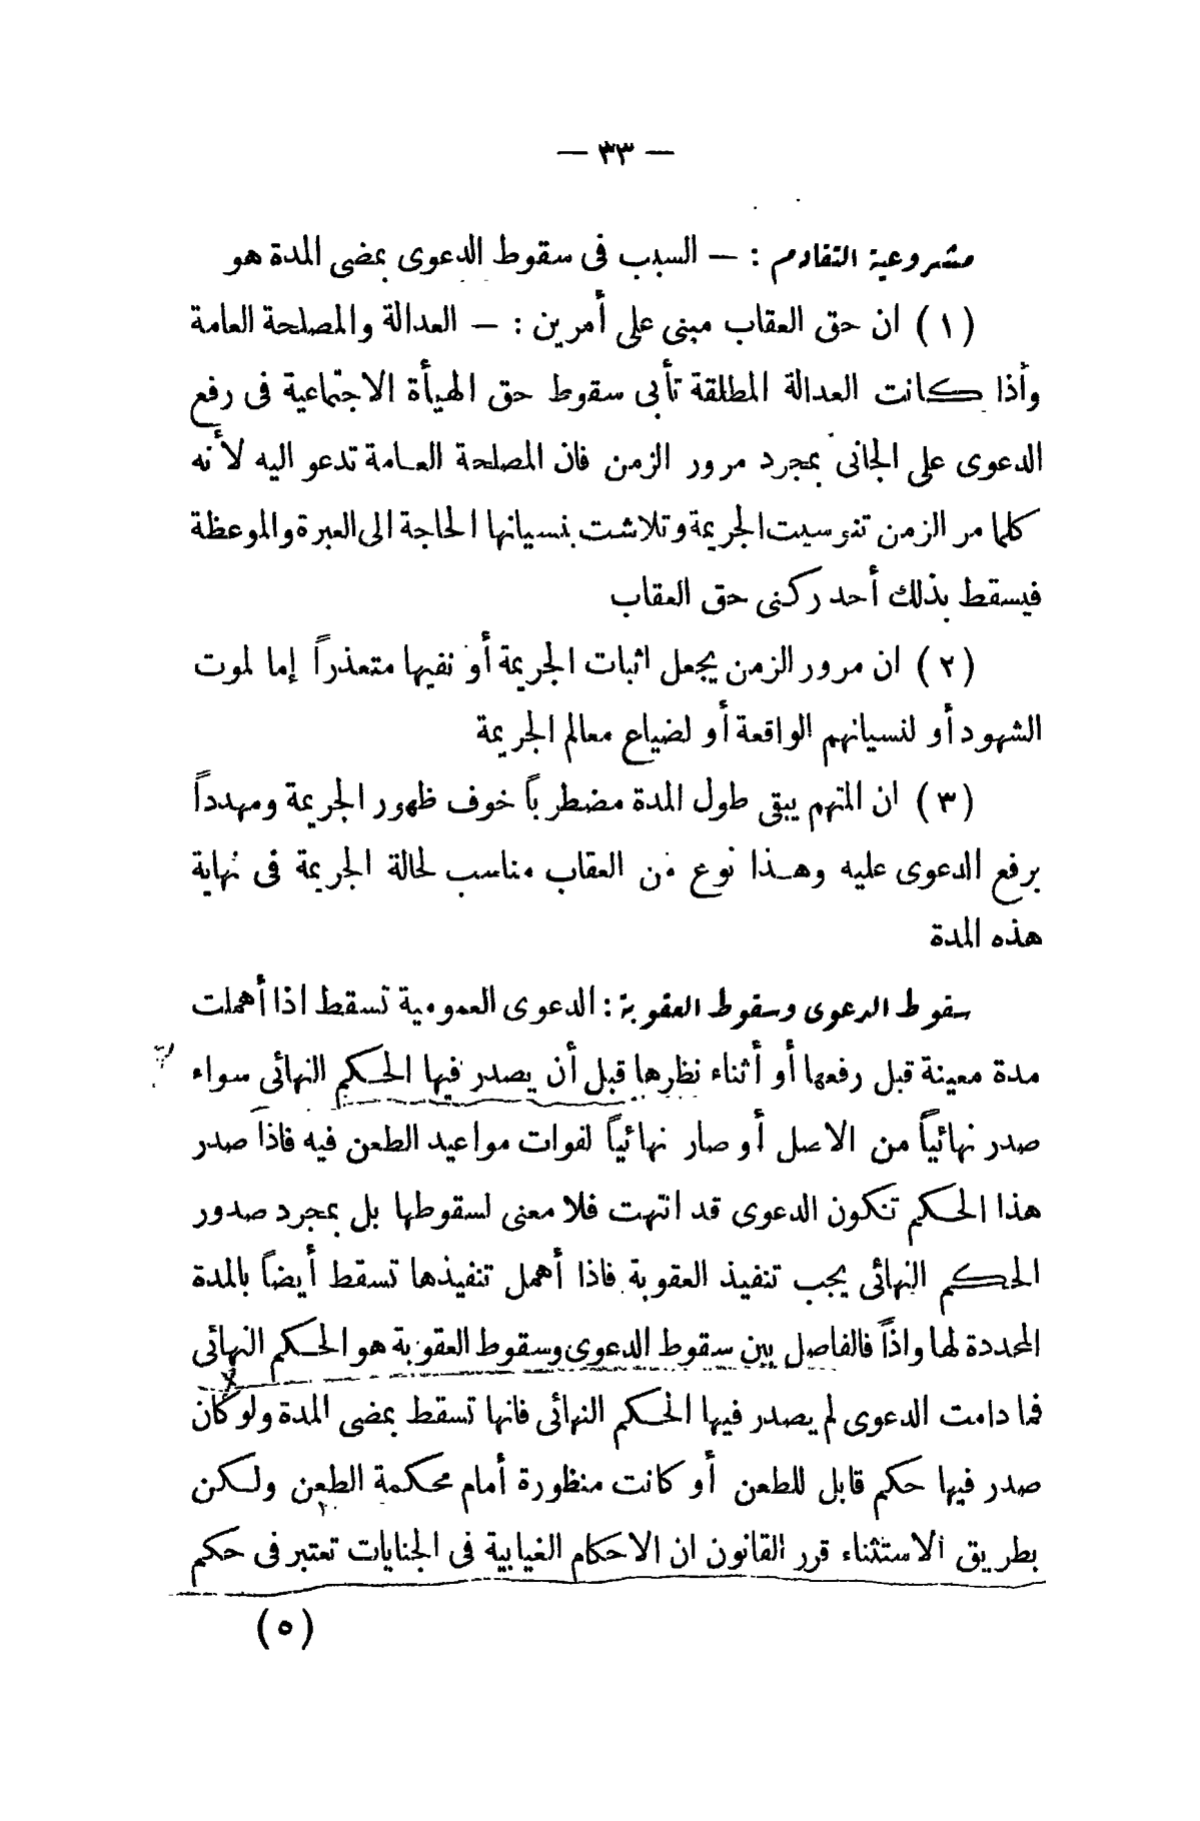 — ٣٣ —
مشروعية التقادم : — السبب فى سقوط الدعوى بمضى المدة هو
(١) ان حق العقاب مبنى على أمرين : — العدالة والمصلحة العامة
وأذا كانت العدالة المطلقة تأبى سقوط حق الهيأة الاجتماعية فى رفع
الدعوى على الجانى بمجرد مرور الزمن فان المصلحة العامة تدعو اليه لأنه
كلما مر الزمن تنوسيت الجريمة وتلاشت بنسيانها الحاجة الى العبرة والموعظة
فيسقط بذلك أحد ركنى حق العقاب
(٢) ان مرور الزمن يجعل اثبات الجريمة أو نفيها متعذراً إما لموت
الشهود أو لنسيانهم الواقعة أو لضياع معالم الجريمة
(٣) ان المتهم يبقى طول المدة مضطرباً خوف ظهور الجريمة ومهدداً
برفع الدعوى عليه وهذا نوع من العقاب مناسب لحالة الجريمة فى نهاية
هذه المدة
سقوط الدعوى وسقوط العقوبة : الدعوى العمومية تسقط اذا أهملت
مدة معينة قبل رفعها أو أثناء نظرها قبل أن يصدر فيها الحكم النهائى سواء
صدر نهائياً من الاصل أو صار نهائياً لفوات مواعيد الطعن فيه فاذا صدر
هذا الحكم تكون الدعوى قد انتهت فلا معنى لسقوطها بل بمجرد صدور
الحكم النهائى يجب تنفيذ العقوبة فاذا أهمل تنفيذها تسقط أيضاً بالمدة
المحددة لها واذاً فالفاصل بين سقوط الدعوى وسقوط العقوبة هو الحكم النهائى
فما دامت الدعوى لم يصدر فيها الحكم النهائى فانها تسقط بمضى المدة ولو كان
صدر فيها حكم قابل للطعن أو كانت منظورة أمام محكمة الطعن ولكن
بطريق الاستثناء قرر القانون ان الاحكام الغيابية فى الجنايات تعتبر فى حكم
(٥)